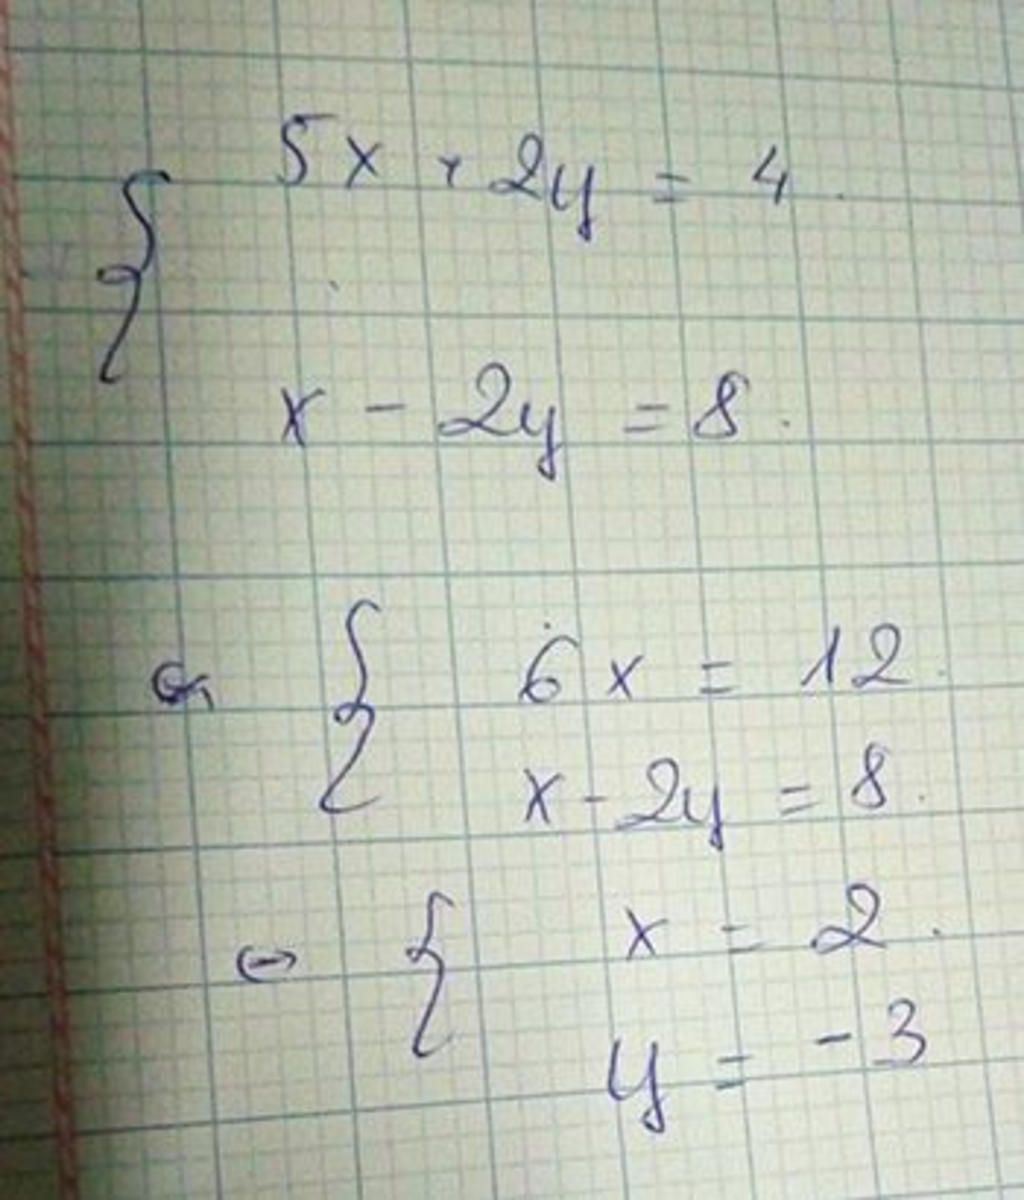 { 5x + 2y = 4
x - 2y = 8
⇔ { 6x = 12
x - 2y = 8
⇔ { x = 2
y = -3